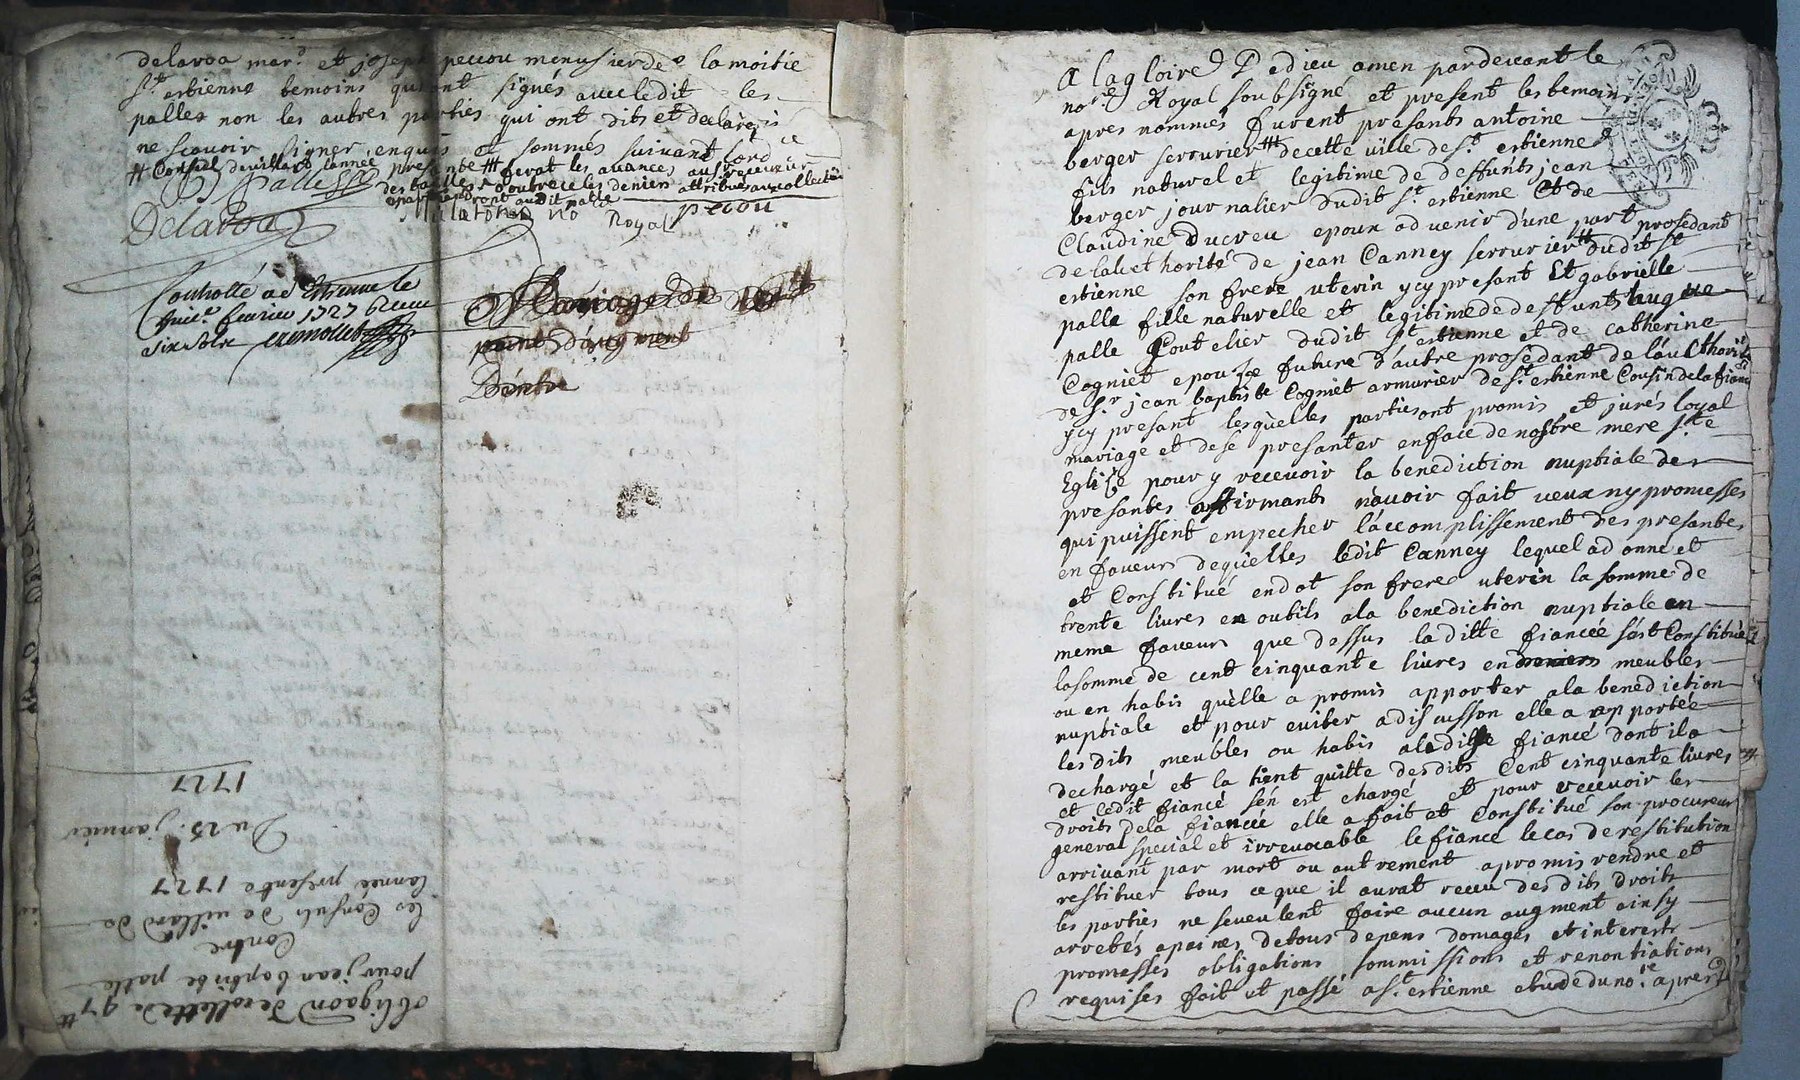 delaroa mar.d et joseph peccou menusier de la moitie
St estienne temoins qui ont signés avec ledit les
palles non les autres parties qui ont dits et declarés
ne scavoir signer enquis et sommés suivant lord.ce
# Consul de villars lannée presente # ferat les avances au receveur
des tailles outre ce les deniers attribués au collecteur
apartiendront audit palle
J B palle
Delaroa
no Royal
pecou
Controllé a St Etienne le
fevrier 1727 Receu
six sols
Mariage de 181#
point d'augment
Bentre
A la gloire De dieu amen pardevant le
no.re Royal soubsigné et present les temoins
apres nommés furent présents antoine
berger serrurier # de cette ville de St estienne
fils naturel et legitime de deffunts jean
berger journalier dudit St estienne et de
Claudine Ducreu epoux advenir d'une part prosedant
de lauthorité de jean Canney serrurier # dudit St
estienne son frere uterin ycy présent Et gabrielle
palle fille naturelle et legitime de deffunts hugue
palle Coutelier dudit St estienne et de catherine
Cogniet epouze future d'autre prosedant de l'aucthorité
de Sr jean baptiste Cogniet armurier de St estienne Cousin de la fiancé
ycy présent lesquelles parties ont promis et jurés loyal
mariage et de se presanter en face de nostre mere Ste
Eglise pour y recevoir la benediction nuptiale des
presantes affirmants n'avoir fait veux ny promesses
qui puissent empecher l'acomplissement des presantes
en faveurs dequelles ledit Canney lequel a donné et
et Constitué en dot son frere uterin la somme de
trente livres en outils a la benediction nuptiale en
meme faveurs que dessus la ditte fiancée s'est Constituée
la somme de cent cinquante livres en meubles
ou en habis qu'elle a promis apporter a la benediction
nuptiale et pour eviter a discusson elle a apportée
les dits meubles ou habis audit fiancé dont il a
dechargé et la tient quitte desdits Cent cinquante livres
et ledit fiancé s'én est chargé et pour recevoir les
droits de la fiancée elle a fait et Constitué son procureur
general special et irrevocable le fiancé le cas de réstitution
arrivant par mort ou autrement a promis rendre et
restituer tous ce que il aurat receu desdits droits
les parties ne seveulent faire aucun augment ainsy
arretés a paines de tous depens domages et interests
promesses obligations soummissions et renontiations
requises fait et passé a St estienne etude du no.re apres
obligaon de collette de 97#
pour jean baptiste palle
Contre
les Consuls de villard de
lannée presente 1727
Du 25 janvier
1727